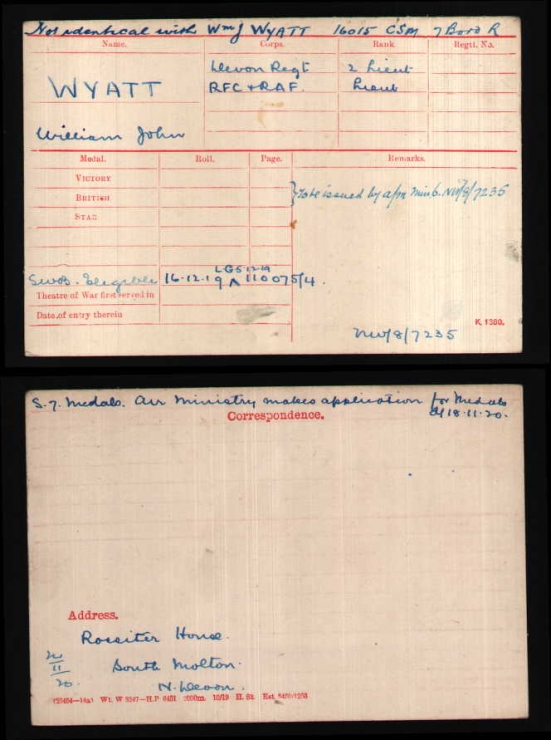 Not identical with Wm J WYATT 16015 CSM 7 Bord R
Name. Corps. Rank Regtl. No.
WYATT
Devon Regt 2 Lieut
RFC + RAF. Lieut
William John
Medal. Roll. Page. Remarks.
VICTORY
BRITISH
STAR
To be issued by a/m Min 6. NW/8/7235
LG 5.12.19
SWB. Eligible 16.12.19 A 110075/4.
Theatre of War first served in
Date of entry therein
K. 1380.
NW/8/7235
S. 7. Medals. Air Ministry makes application for Medals
d/ 18.11.20.
Correspondence.
Address.
Rossiter House.
South Molton.
11
20.
N. Devon.